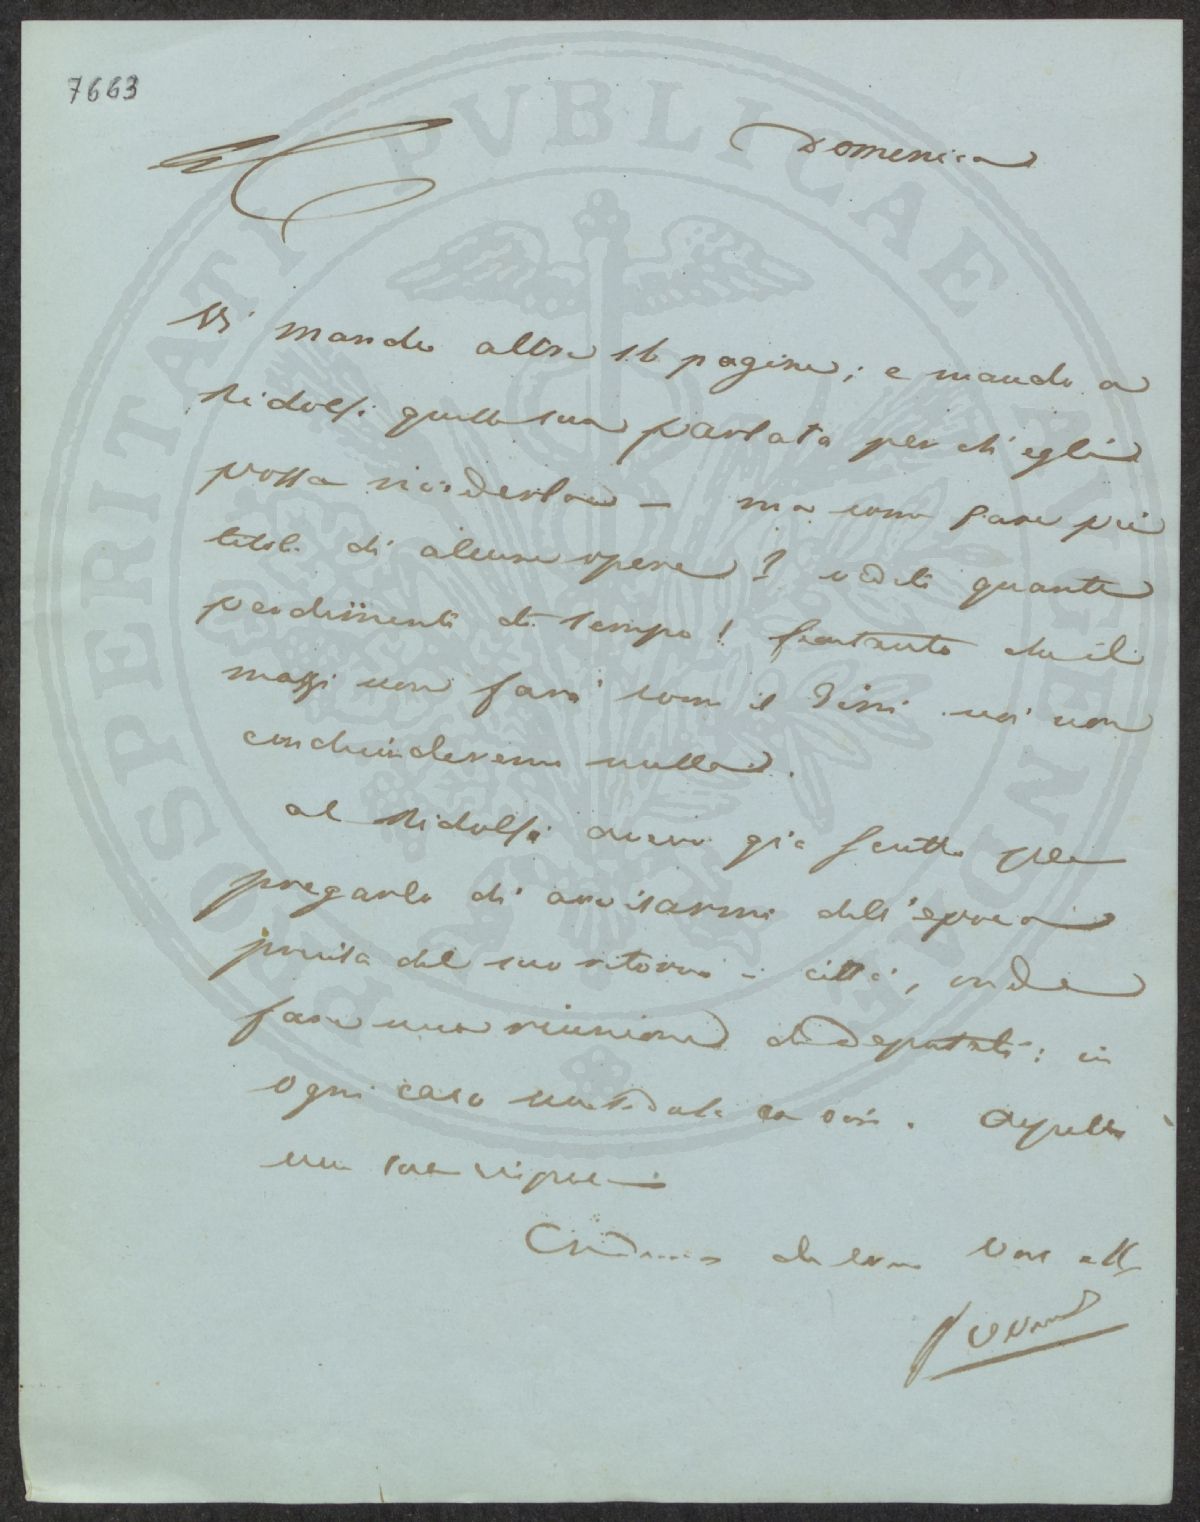 7663
Domenica
Vi mando altre 16 pagine; e mando a
Ridolfi quella sua parlata perch'egli
possa rivederla — ma come fare pei
titoli di alcune opere? vedete quanti
perdimenti di tempo! fintanto che il
mazzi non farà come il Tissi noi non
conchiuderemo nulla.
al Ridolfi avevo già scritto per
pregarlo di avvisarmi dell'epoca
precisa del suo ritorno in città, onde
fare una riunione di deputati: in
ogni caso
Credetemi
PROSPERITATI PVBLICAE AVGENDAE